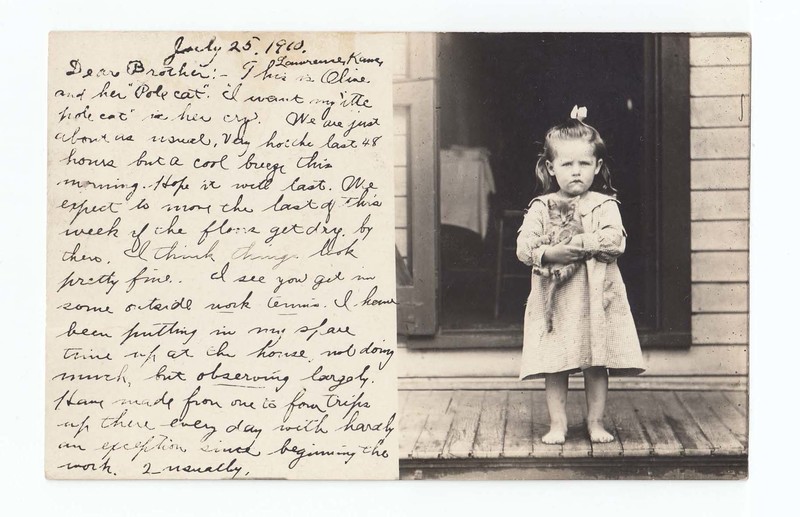 July 25. 1910.
Lawrence, Kans,
Dear Brother:- This is Olive
and her "Pole cat". "I want my 'itte
pole cat" is her cry. We are just
about as usual. Very hot the last 48
hours but a cool breeze this
morning. Hope it will last. We
expect to move the last of this
week if the floors get dry by
then. I think things look
pretty fine. I see you get in
some outside work tennis. I have
been putting in my spare
time up at the house, not doing
much, but observing largely.
Have made from one to four trips
up there every day with hardly
an exception since beginning the
work. 2 usually.